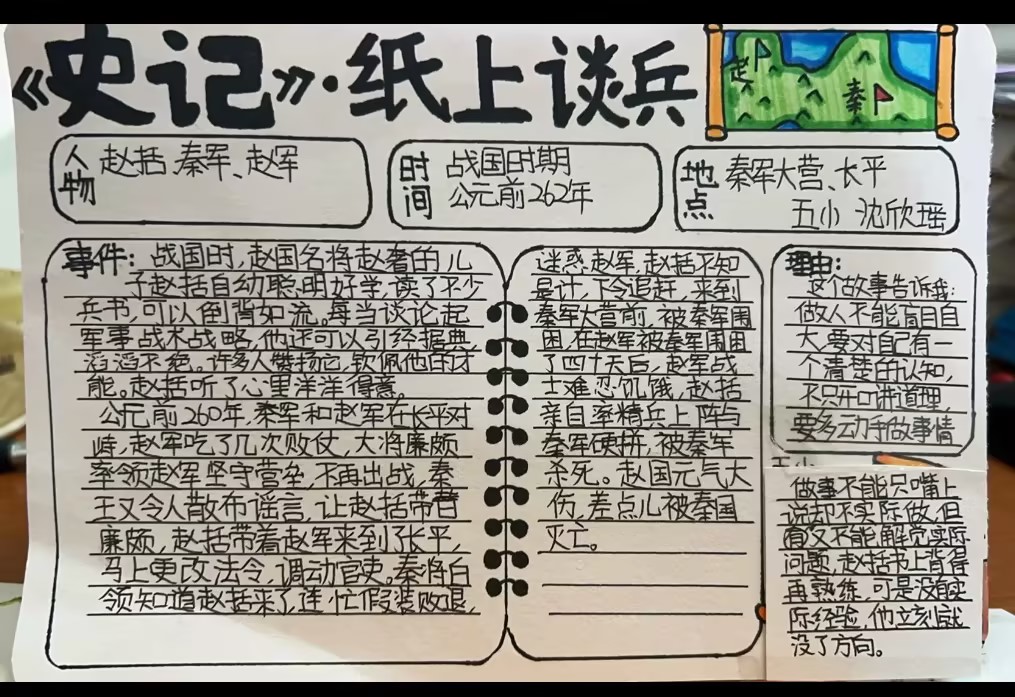 《史记》·纸上谈兵
赵
秦
人物
赵括、秦军、赵军
时间
战国时期
公元前262年
地点
秦军大营、长平
五小 沈欣瑶
事件:战国时,赵国名将赵奢的儿
子赵括自幼聪明好学,读了不少
兵书,可以倒背如流。每当谈论起
军事战术战略,他还可以引经据典,
滔滔不绝。许多人赞扬它,钦佩他的才
能。赵括听了心里洋洋得意。
公元前260年,秦军和赵军在长平对
峙,赵军吃了几次败仗,大将廉颇
率领赵军坚守营垒,不再出战,秦
王又令人散布谣言,让赵括带替
廉颇,赵括带着赵军来到了长平,
马上更改法令,调动官吏。秦将白
领知道赵括来了,连忙假装败退,
迷惑赵军,赵括不知
是计,下令追赶,来到
秦军大营前,被秦军围
困,在赵军被秦军围困
了四十天后,赵军战
士难忍饥饿,赵括
亲自率精兵上阵与
秦军硬拼,被秦军
杀死。赵国元气大
伤,差点儿被秦国
灭亡。
理由:
这个故事告诉我:
做人不能盲目自
大,要对自己有一
个清楚的认知,
不只开口讲道理,
要多动手做事情
做事不能只嘴上
说却不实际做,但
又不能解觉实际
问题,赵括书上背得
再熟练,可是没有实
际经验,他立刻就
没了方向。